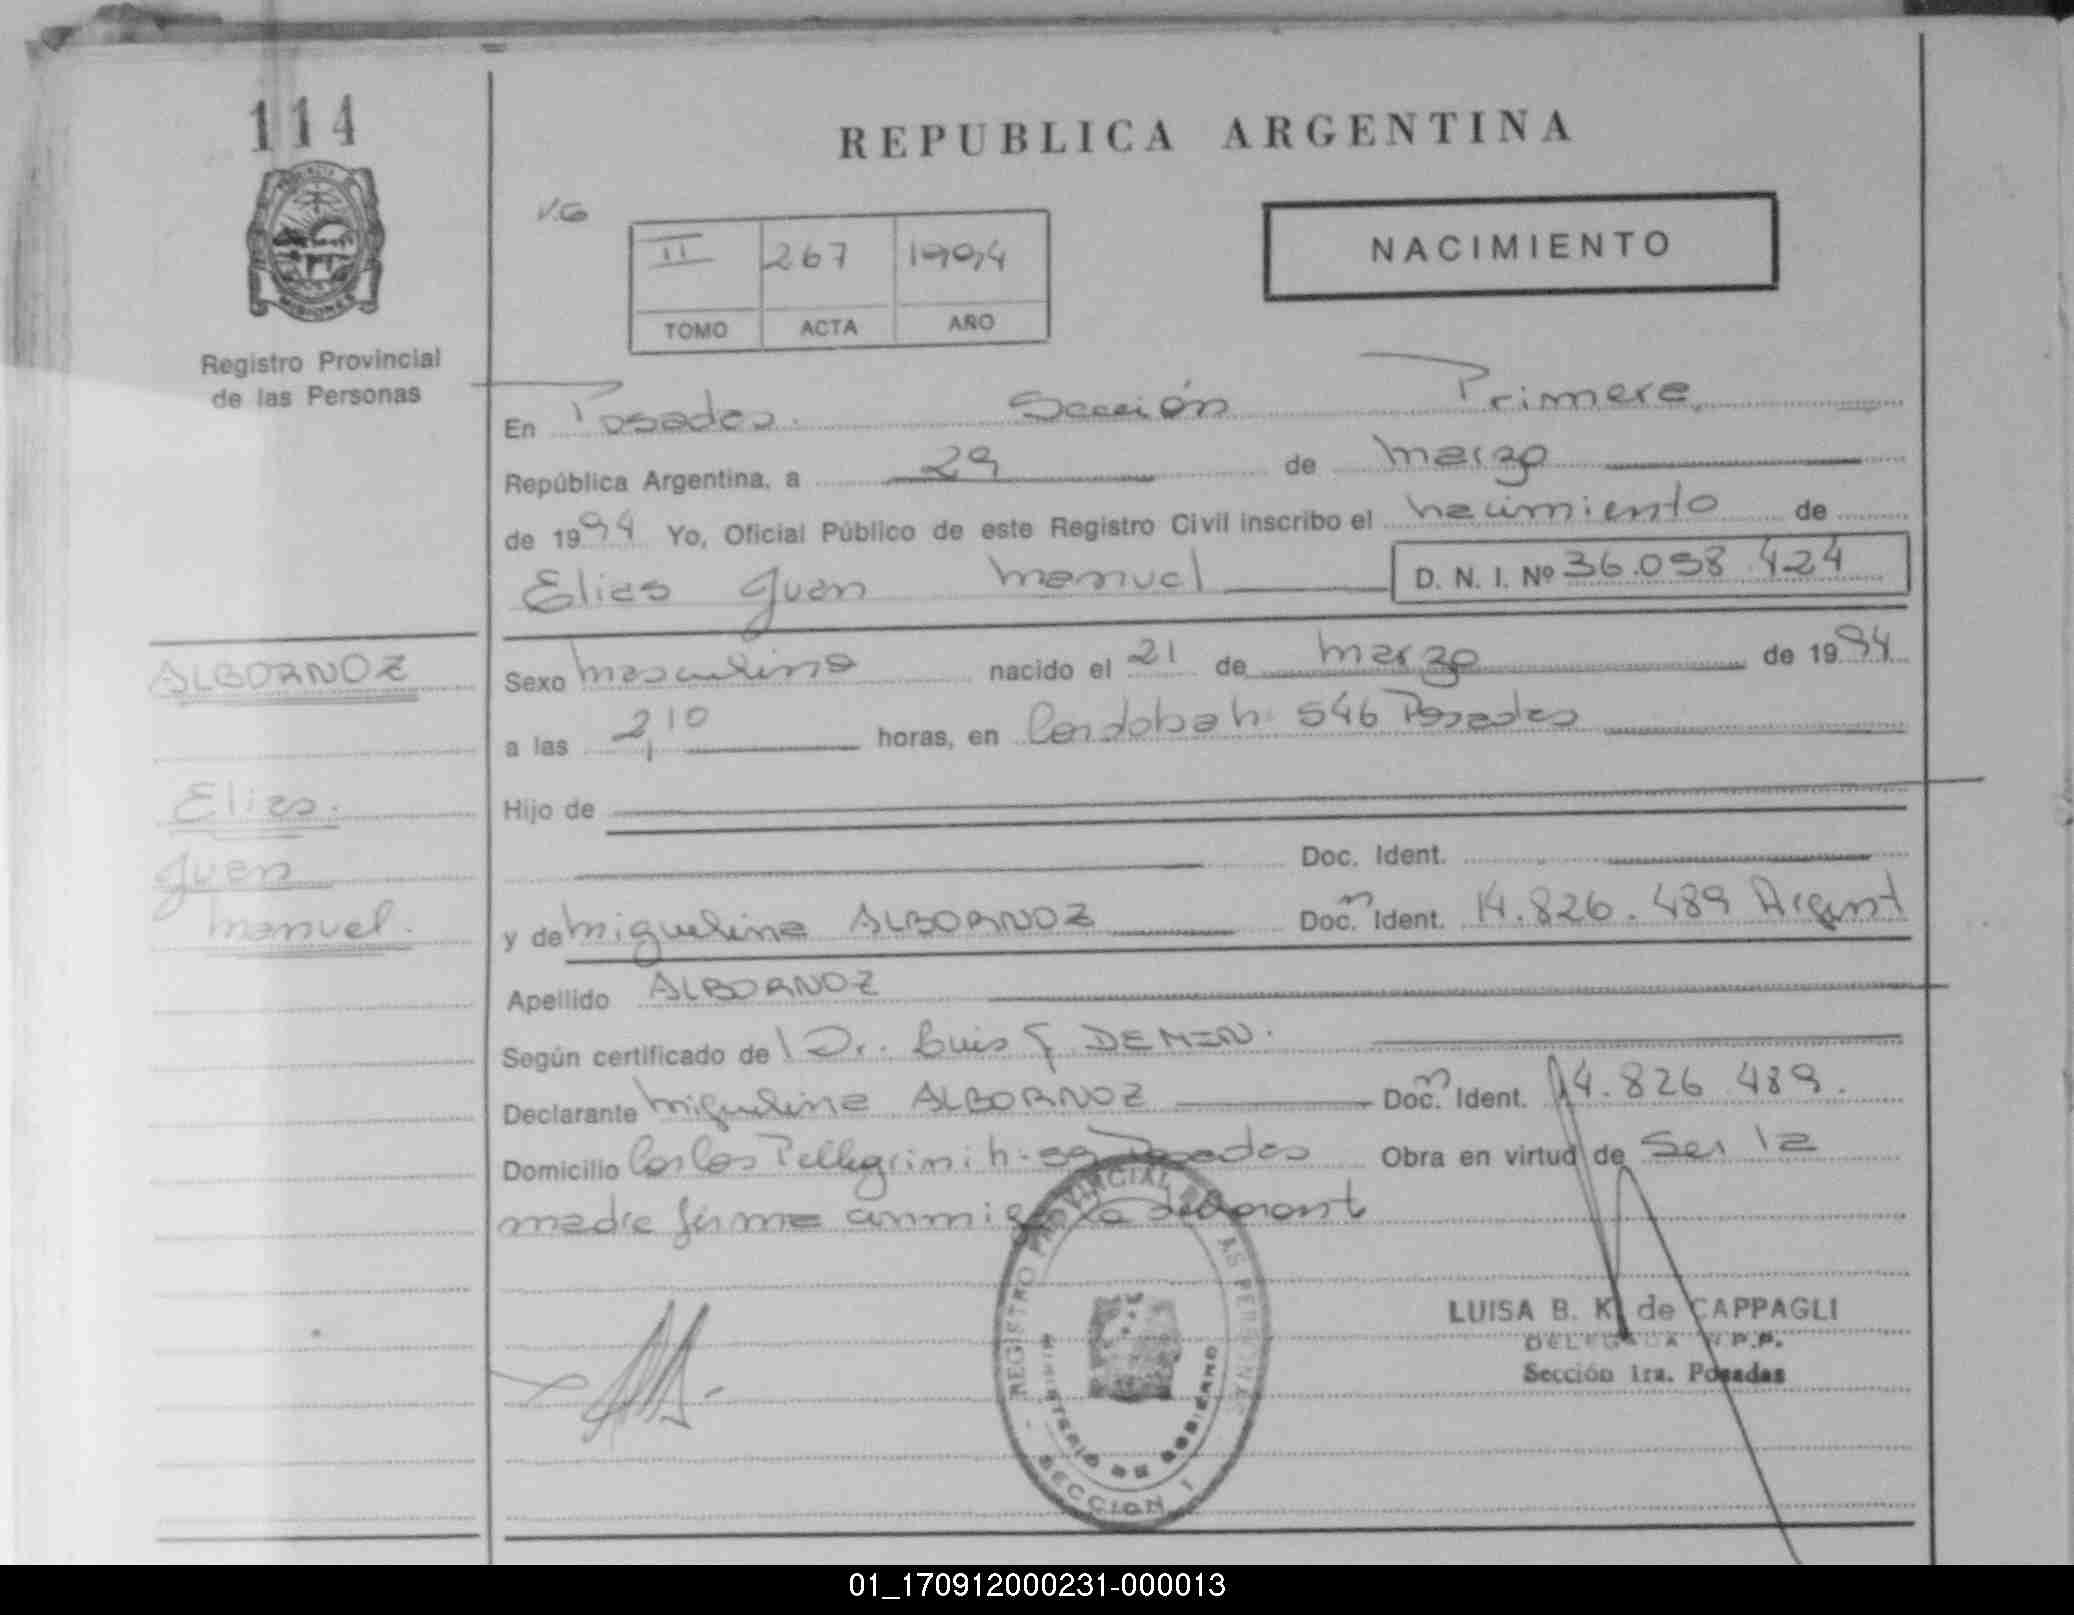 114
REPUBLICA ARGENTINA
V.G
II 267 1994
TOMO ACTA AÑO
NACIMIENTO
Registro Provincial
de las Personas
En Posadas. Sección Primera
República Argentina, a 29 de marzo
de 1994 Yo, Oficial Público de este Registro Civil inscribo el nacimiento de
Elias Juan Manuel D. N. I. Nº 36.058.424
ALBORNOZ
Elias.
Juan
Manuel.
Sexo masculino nacido el 21 de marzo de 1994
a las 2,10 horas, en Cordoba h: 546 Posadas
Hijo de
Doc. Ident.
y de Miguelina ALBORNOZ Doc. Ident. 14.826.489 Argent
Apellido ALBORNOZ
Según certificado de Dr. Luis G DEMIN.
Declarante Miguelina ALBORNOZ Doc. Ident. 14.826 489.
Domicilio Carlos Pellegrini h: 59 Posadas Obra en virtud de Ser la
madre firma conmigo la
REGISTRO PROVINCIAL DE LAS PERSONAS
MINISTERIO DE GOBIERNO
SECCION 1
LUISA B. K. de CAPPAGLI
DELEGADA R.P.P.
Sección 1ra. Posadas
01_170912000231-000013